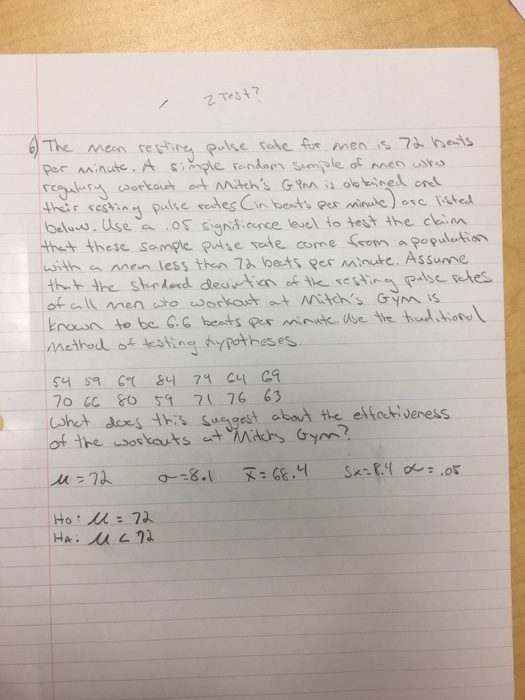 Z Test?
6) The mean resting pulse rate for men is 72 beats
per minute. A simple random sample of men who
regulary workout at Mitch's Gym is obtained and
their resting pulse rates (in beats per minute) are listed
below. Use a .05 significance level to test the claim
that these sample pulse rate come from a population
with a mean less than 72 beats per minute. Assume
that the standard deviation of the resting pulse rates
of all men who workout at Mitch's Gym is
known to be 6.6 beats per minute. Use the traditional
method of testing hypotheses.
54 59 69 84 74 64 69
70 66 80 59 71 76 63
What does this suggest about the effectiveness
of the workouts at Mitch's Gym?
μ = 72 σ = 8.1 x̄ = 68.4 Sx = 8.4 α = .05
Ho: μ = 72
HA: μ < 72